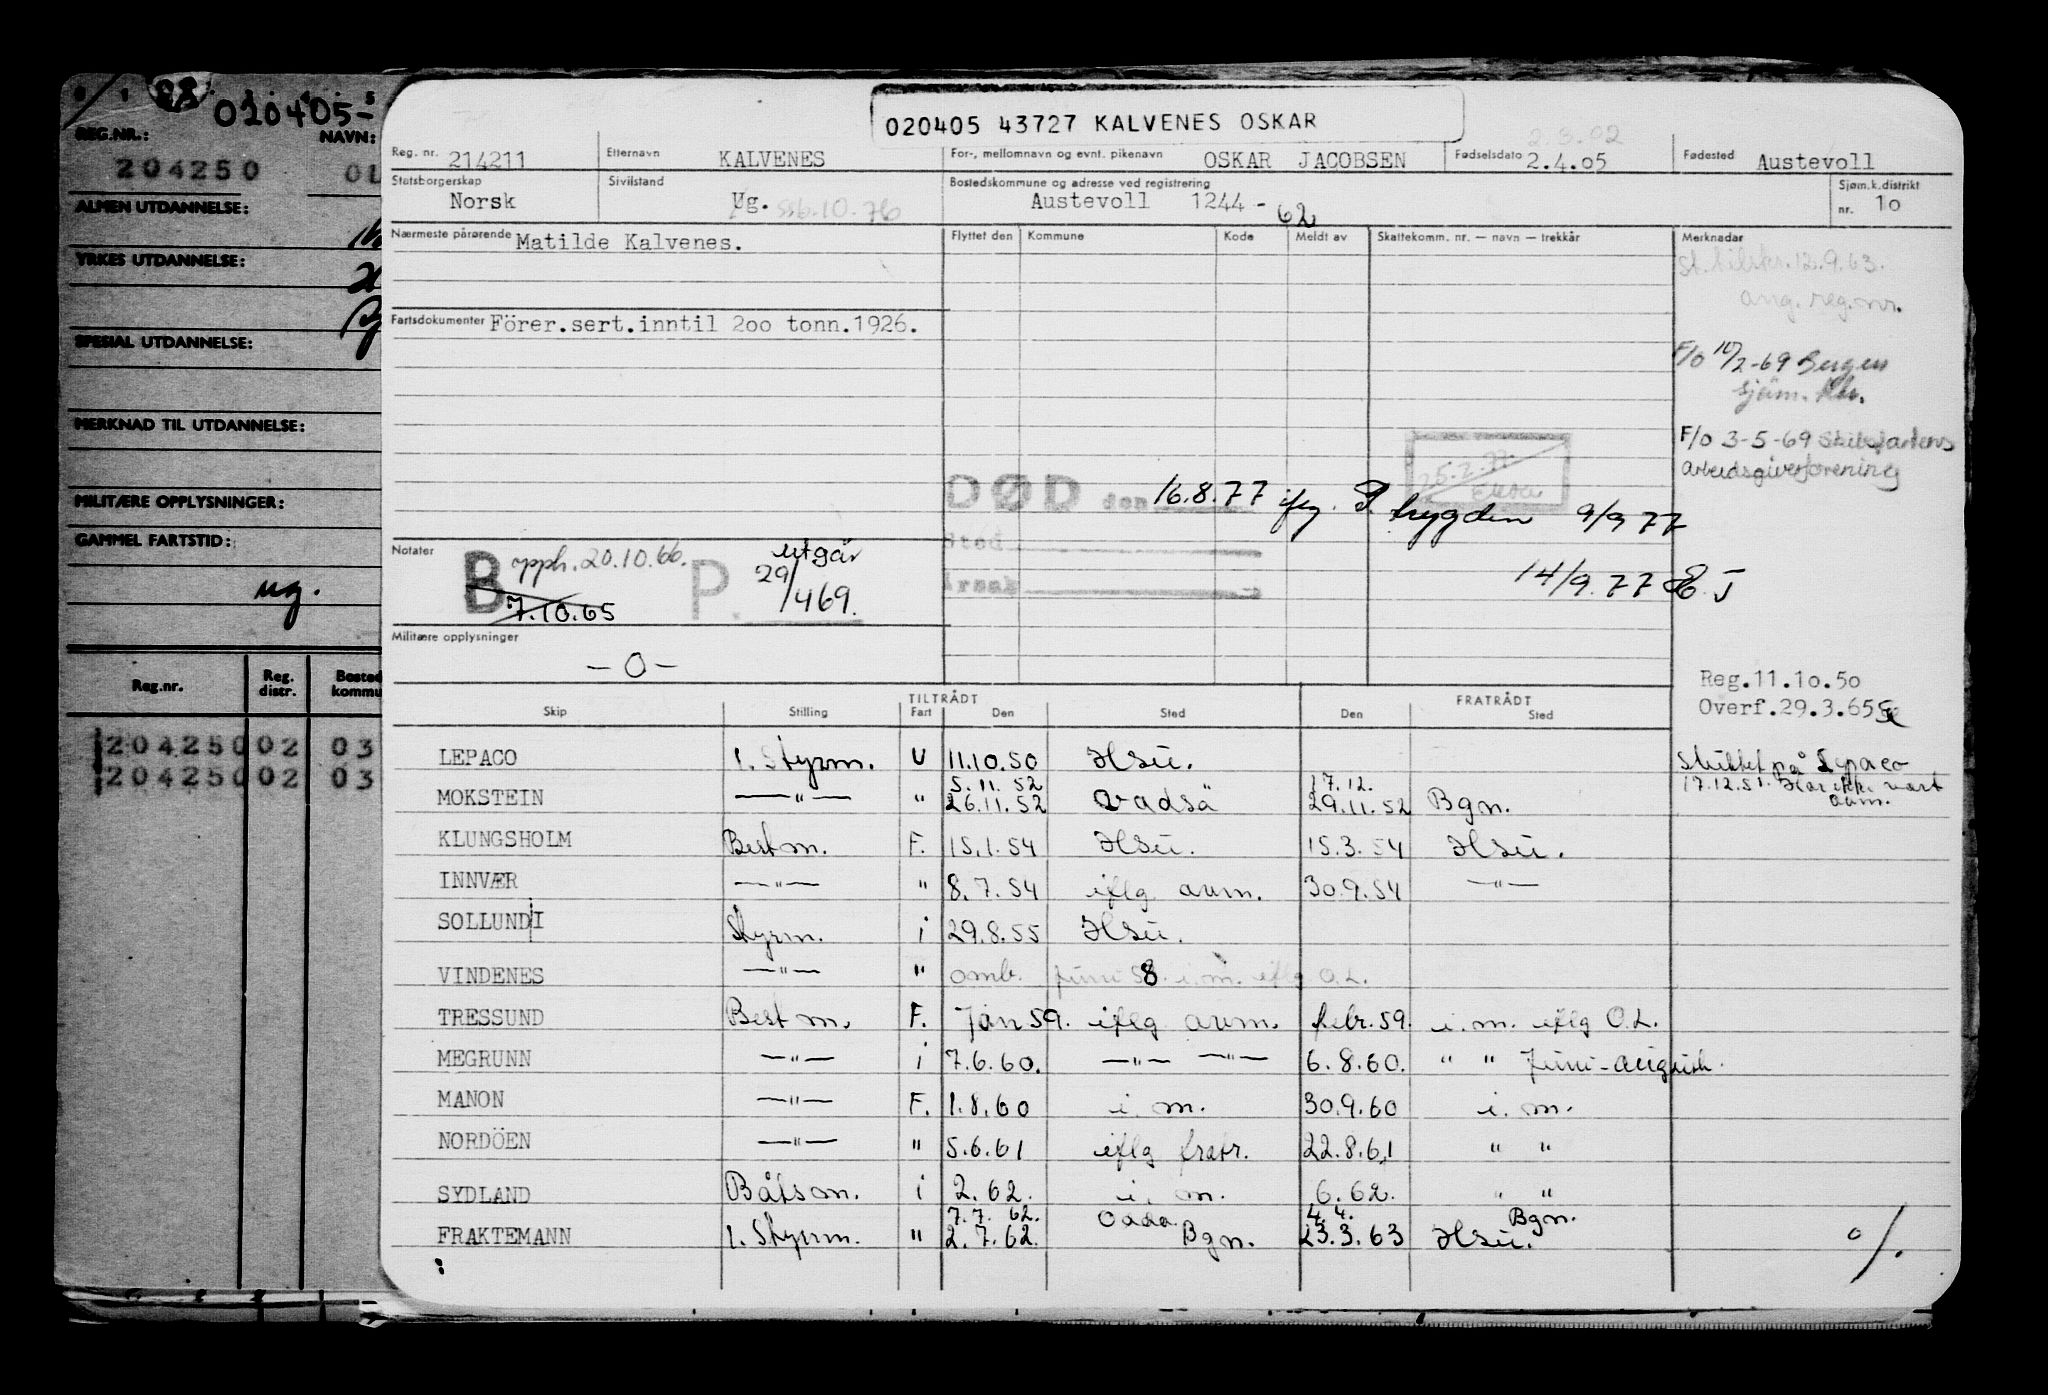 020405-
REG.NR.: NAVN:
204250 OL
ALMEN UTDANNELSE:
YRKES UTDANNELSE:
SPESIAL UTDANNELSE:
MERKNAD TIL UTDANNELSE:
MILITÆRE OPPLYSNINGER:
GAMMEL FARTSTID:
ug.
Reg.nr. Reg. distr. Bosted kommu
204250 02 03
204250 02 03
020405 43727 KALVENES OSKAR
2.3.02
Reg. nr. 214211 Etternavn KALVENES For-, mellomnavn og evnt. pikenavn OSKAR JACOBSEN Fødselsdato 2.4.05 Fødested Austevoll
Statsborgerskap Norsk Sivilstand Ug. ss6.10.76 Bostedskommune og adresse ved registrering Austevoll 1244 - 62 Sjøm.k.distrikt nr. 10
Nærmeste pårørende Matilde Kalvenes. Flyttet den Kommune Kode Meldt av Skattekomm. nr. — navn — trekkår Merknader
12.9.63.
ang. reg.nr.
Fartsdokumenter Förer.sert.inntil 2oo tonn.1926.
F/o 10/2-69 Bergen
sjøm. ktr.
F/o 3-5-69 Skibsfartens
arbeidsgiverforening
DØD den 16.8.77 ifg. trygden 9/9 77
Sted
Årsak
14/9.77 EJ
Notater B opph. 20.10.66. P. utgår
7.10.65 29/4 69.
Militære opplysninger
— O —
Reg.11.1o.5o
Overf.29.3.65
TILTRÅDT FRATRÅDT
Skip Stilling Fart Den Sted Den Sted
LEPACO 1. Styrm. U 11.10.50 Hsu. Skiftet på Lepaco
5.11.52 17.12. 17.12.51. Har ikke vært avm.
MOKSTEIN —"— " 26.11.52 Vadsø 29.11.52 Bgn.
KLUNGSHOLM Bestm. F. 15.1.54 Hsu. 15.3.54 Hsu.
INNVÆR —"— " 8.7.54 iflg avm. 30.9.54 —"—
SOLLUNDI Styrm. i 29.8.55 Hsu.
VINDENES —"— " omb. juni 58. i.m. iflg O.L.
TRESSUND Bestm. F. Jan 59. iflg avm. febr. 59. i.m. iflg O.L.
MEGRUNN —"— i 7.6.60. —"— —"— 6.8.60. " " Juni-august.
MANON —"— F. 1.8.60 i.m. 30.9.60 i.m.
NORDÖEN —"— " 5.6.61 iflg fratr. 22.8.61 " "
SYDLAND Båtsm. i 2.62. i.m. 6.62. " "
7.7.62. Odda. 4.4. Bgn.
FRAKTEMANN 1. Styrm. " 2.7.62. Bgn. 23.3.63 Hsu.
%.